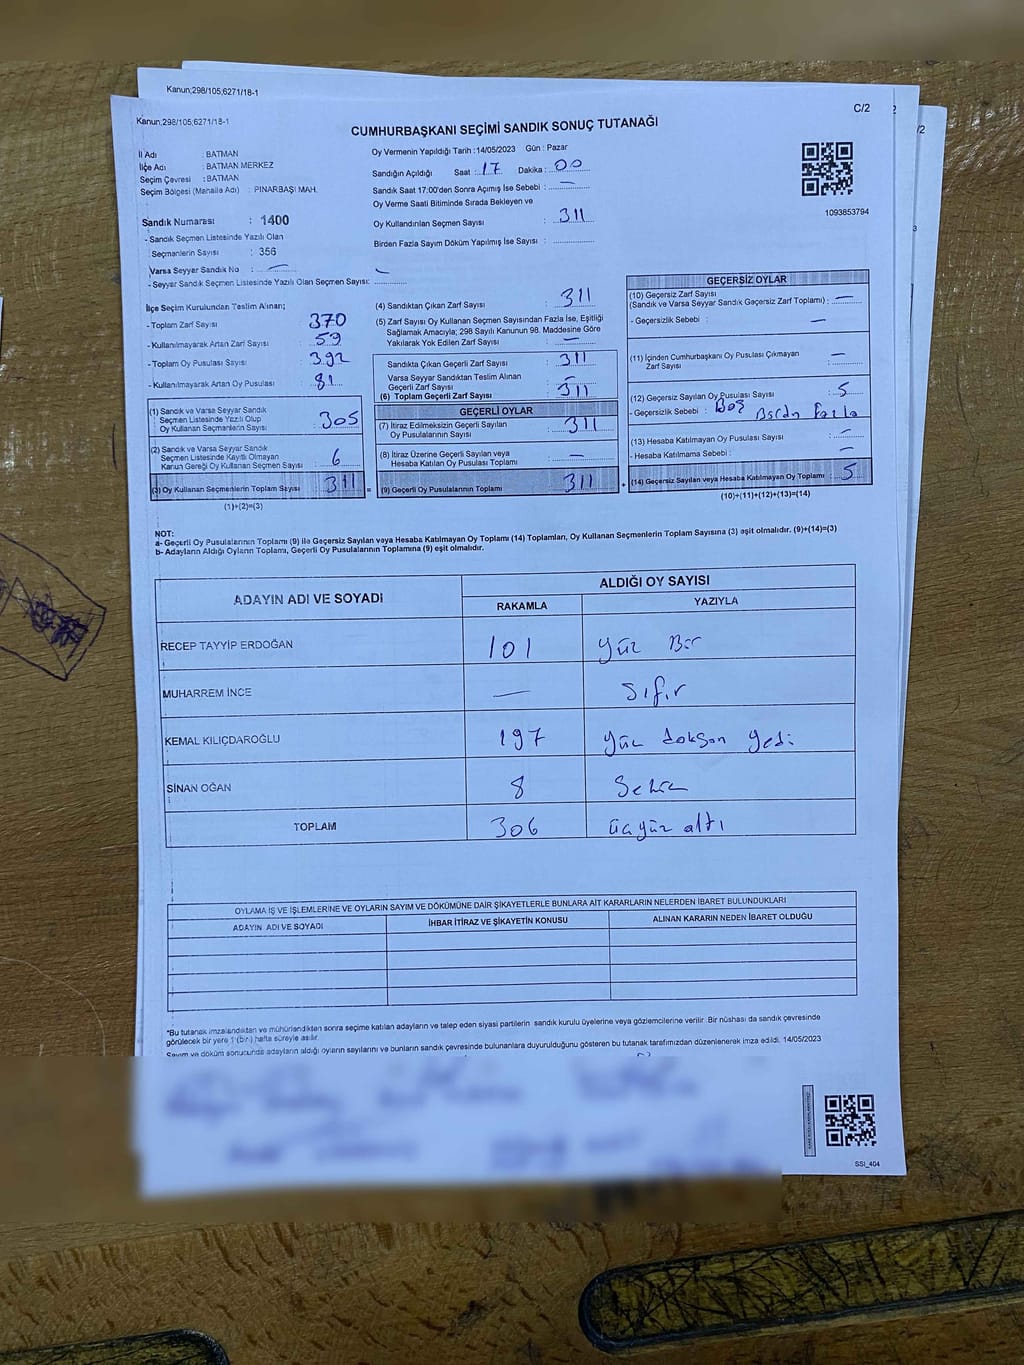 Kanun;298/105;6271/18-1
Kanun;298/105;6271/18-1
C/2
/2
CUMHURBAŞKANI SEÇİMİ SANDIK SONUÇ TUTANAĞI
İl Adı : BATMAN
İlçe Adı : BATMAN MERKEZ
Seçim Çevresi : BATMAN
Seçim Bölgesi (Mahalle Adı) : PINARBAŞI MAH.
Sandık Numarası : 1400
- Sandık Seçmen Listesinde Yazılı Olan
Seçmenlerin Sayısı : 356
Varsa Seyyar Sandık No : —
- Seyyar Sandık Seçmen Listesinde Yazılı Olan Seçmen Sayısı:
Oy Vermenin Yapıldığı Tarih :14/05/2023 Gün : Pazar
Sandığın Açıldığı Saat : 17 Dakika : 00
Sandık Saat 17:00'den Sonra Açımış İse Sebebi : —
Oy Verme Saati Bitiminde Sırada Bekleyen ve
Oy Kullandırılan Seçmen Sayısı : 311
Birden Fazla Sayım Döküm Yapılmış İse Sayısı :
1093853794
İlçe Seçim Kurulundan Teslim Alınan;
- Toplam Zarf Sayısı : 370
- Kullanılmayarak Artan Zarf Sayısı : 59
- Toplam Oy Pusulası Sayısı : 392
- Kullanılmayarak Artan Oy Pusulası : 81
(1) Sandık ve Varsa Seyyar Sandık
Seçmen Listesinde Yazılı Olup
Oy Kullanan Seçmenlerin Sayısı : 305
(2) Sandık ve Varsa Seyyar Sandık
Seçmen Listesinde Kayıtlı Olmayan
Kanun Gereği Oy Kullanan Seçmen Sayısı : 6
(3) Oy Kullanan Seçmenlerin Toplam Sayısı : 311 =
(1)+(2)=(3)
(4) Sandıktan Çıkan Zarf Sayısı : 311
(5) Zarf Sayısı Oy Kullanan Seçmen Sayısından Fazla İse, Eşitliği
Sağlamak Amacıyla; 298 Sayılı Kanunun 98. Maddesine Göre
Yakılarak Yok Edilen Zarf Sayısı : —
Sandıkta Çıkan Geçerli Zarf Sayısı : 311
Varsa Seyyar Sandıktan Teslim Alınan
Geçerli Zarf Sayısı : —
(6) Toplam Geçerli Zarf Sayısı : 311
GEÇERLİ OYLAR
(7) İtiraz Edilmeksizin Geçerli Sayılan
Oy Pusulalarının Sayısı : 311
(8) İtiraz Üzerine Geçerli Sayılan veya
Hesaba Katılan Oy Pusulası Toplamı : —
(9) Geçerli Oy Pusulalarının Toplamı : 311 +
GEÇERSİZ OYLAR
(10) Geçersiz Zarf Sayısı
(Sandık ve Varsa Seyyar Sandık Geçersiz Zarf Toplamı) : —
- Geçersizlik Sebebi : —
(11) İçinden Cumhurbaşkanı Oy Pusulası Çıkmayan
Zarf Sayısı : —
(12) Geçersiz Sayılan Oy Pusulası Sayısı : 5
- Geçersizlik Sebebi : Boş Birden Fazla
(13) Hesaba Katılmayan Oy Pusulası Sayısı : —
- Hesaba Katılmama Sebebi : —
(14) Geçersiz Sayılan veya Hesaba Katılmayan Oy Toplamı : 5
(10)+(11)+(12)+(13)=(14)
NOT:
a- Geçerli Oy Pusulalarının Toplamı (9) ile Geçersiz Sayılan veya Hesaba Katılmayan Oy Toplamı (14) Toplamları, Oy Kullanan Seçmenlerin Toplam Sayısına (3) eşit olmalıdır. (9)+(14)=(3)
b- Adayların Aldığı Oyların Toplamı, Geçerli Oy Pusulalarının Toplamına (9) eşit olmalıdır.
ADAYIN ADI VE SOYADI
ALDIĞI OY SAYISI
RAKAMLA YAZIYLA
RECEP TAYYİP ERDOĞAN 101 yüz Bir
MUHARREM İNCE — Sıfır
KEMAL KILIÇDAROĞLU 197 yüz doksan yedi
SİNAN OĞAN 8 Sekiz
TOPLAM 306 üçyüz altı
OYLAMA İŞ VE İŞLEMLERİNE VE OYLARIN SAYIM VE DÖKÜMÜNE DAİR ŞİKAYETLERLE BUNLARA AİT KARARLARIN NELERDEN İBARET BULUNDUKLARI
ADAYIN ADI VE SOYADI İHBAR İTİRAZ VE ŞİKAYETİN KONUSU ALINAN KARARIN NEDEN İBARET OLDUĞU
*Bu tutanak imzalandıktan ve mühürlendikten sonra seçime katılan adayların ve talep eden siyasi partilerin sandık kurulu üyelerine veya gözlemcilerine verilir. Bir nüshası da sandık çevresinde
görülecek bir yere 1 (bir) hafta süreyle asılır.
Sayım ve döküm sonucunda adayların aldığı oyların sayılarını ve bunların sandık çevresinde bulunanlara duyurulduğunu gösteren bu tutanak tarafımızdan düzenlenerek imza edildi. 14/05/2023
SSİ_404